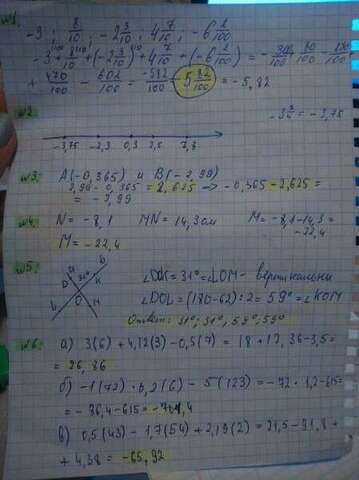 №1
-3 ; 8/10 ; -2 3/10 ; 4 7/10 ; -6 2/100
-3 + 8/10 + (-2 3/10) + 4 7/10 + (-6 2/100) = -300/100 80/100 -230/100
+ 470/100 - 602/100 = -582/100 = -5 82/100 = -5,82
№2. -3 3/4 = -3,75
-3,75 -2,3 0,3 2,5 7,8
№3: A(-0,365) и B(-2,99)
2,99 - 0,365 = 2,625 → -0,365 - 2,625 =
= -2,99
№4. N = -8,1 MN = 14,3см M = -8,1-14,3 =
-22,4
M = -22,4
№5: = 31° = ∠LOM - вертикальни
31°
∠DOL = (180-62):2 = 59° = ∠KOM
Ответ: 31°, 31°, 59°, 59°
№6: а) 3(6) + 4,12(3) - 0,5(7) = 18 + 12,36 - 3,5 =
= 26,86
б) -1(72) · 0,2(6) - 5(123) = -72 · 1,2 - 615 =
= -86,4 - 615 = -701,4
в) 0,5(43) - 1,7(54) + 2,19(2) = 21,5 - 91,8 +
+ 4,38 = -65,92